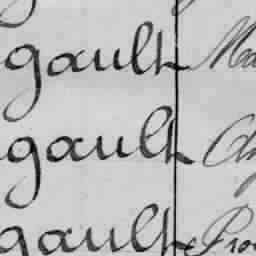 gault Ma
gault
gault Pro